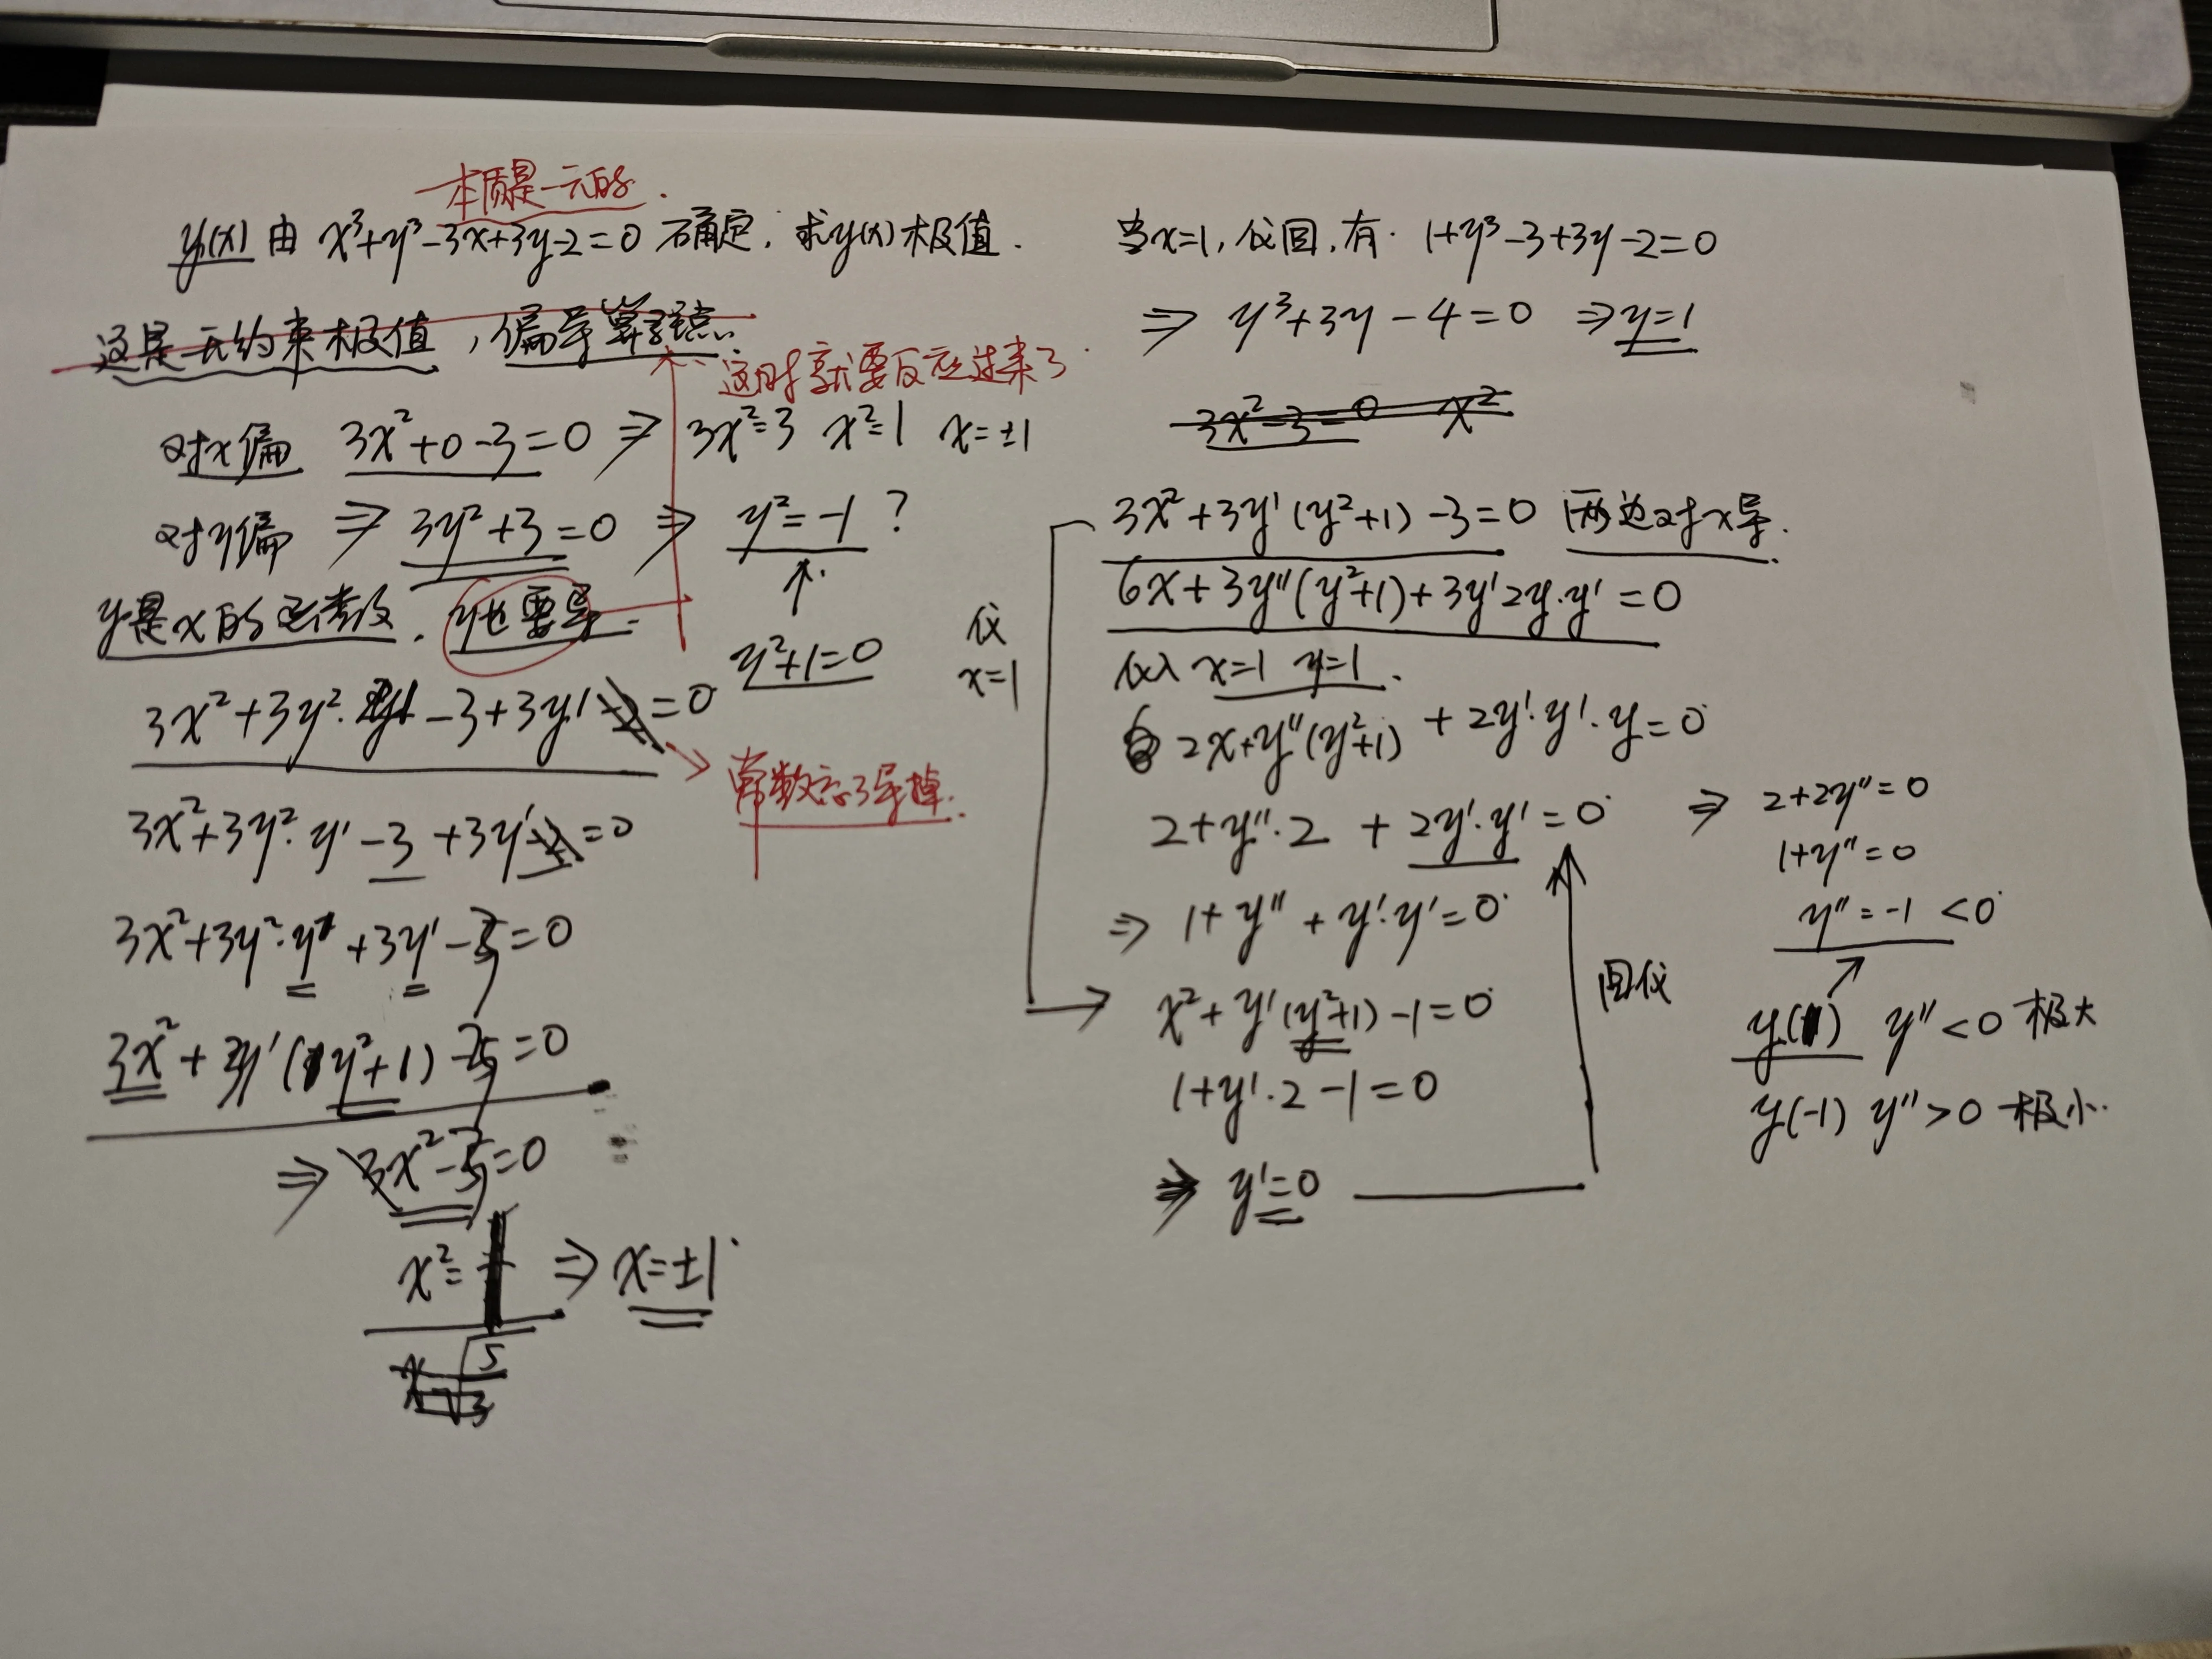 本质是一元的.
y(x) 由 x³+y³-3x+3y-2=0 确定, 求y(x)极值.
这是无约束极值, 偏导算驻点.
这时就要反应过来了
对x偏 3x²+0-3=0 ⇒ 3x²=3 x²=1 x=±1
对y偏 ⇒ 3y²+3=0 ⇒ y²=-1 ?
↑
y是x的函数, y也要导.
y²+1=0
3x²+3y²·y'-3+3y'-2=0
常数忘了导掉.
3x²+3y²·y'-3+3y'-2=0
3x²+3y²·y'+3y'-3=0
3x²+3y'(y²+1)-3=0
⇒ 3x²-3=0
x²=1 ⇒ x=±1
x=√5/3
当x=1, 代回, 有. 1+y³-3+3y-2=0
⇒ y³+3y-4=0 ⇒ y=1
3x²-3=0 x²
3x²+3y'(y²+1)-3=0 两边对x导.
6x+3y''(y²+1)+3y'2y·y'=0
代
x=1
代入 x=1 y=1.
2x+y''(y²+1)+2y'·y'·y=0
2+y''·2+2y'·y'=0
⇒ 1+y''+y'·y'=0
→ x²+y'(y²+1)-1=0
1+y'·2-1=0
⇒ y'=0
回代
⇒ 2+2y''=0
1+y''=0
y''=-1 <0
y(1) y''<0 极大
y(-1) y''>0 极小.